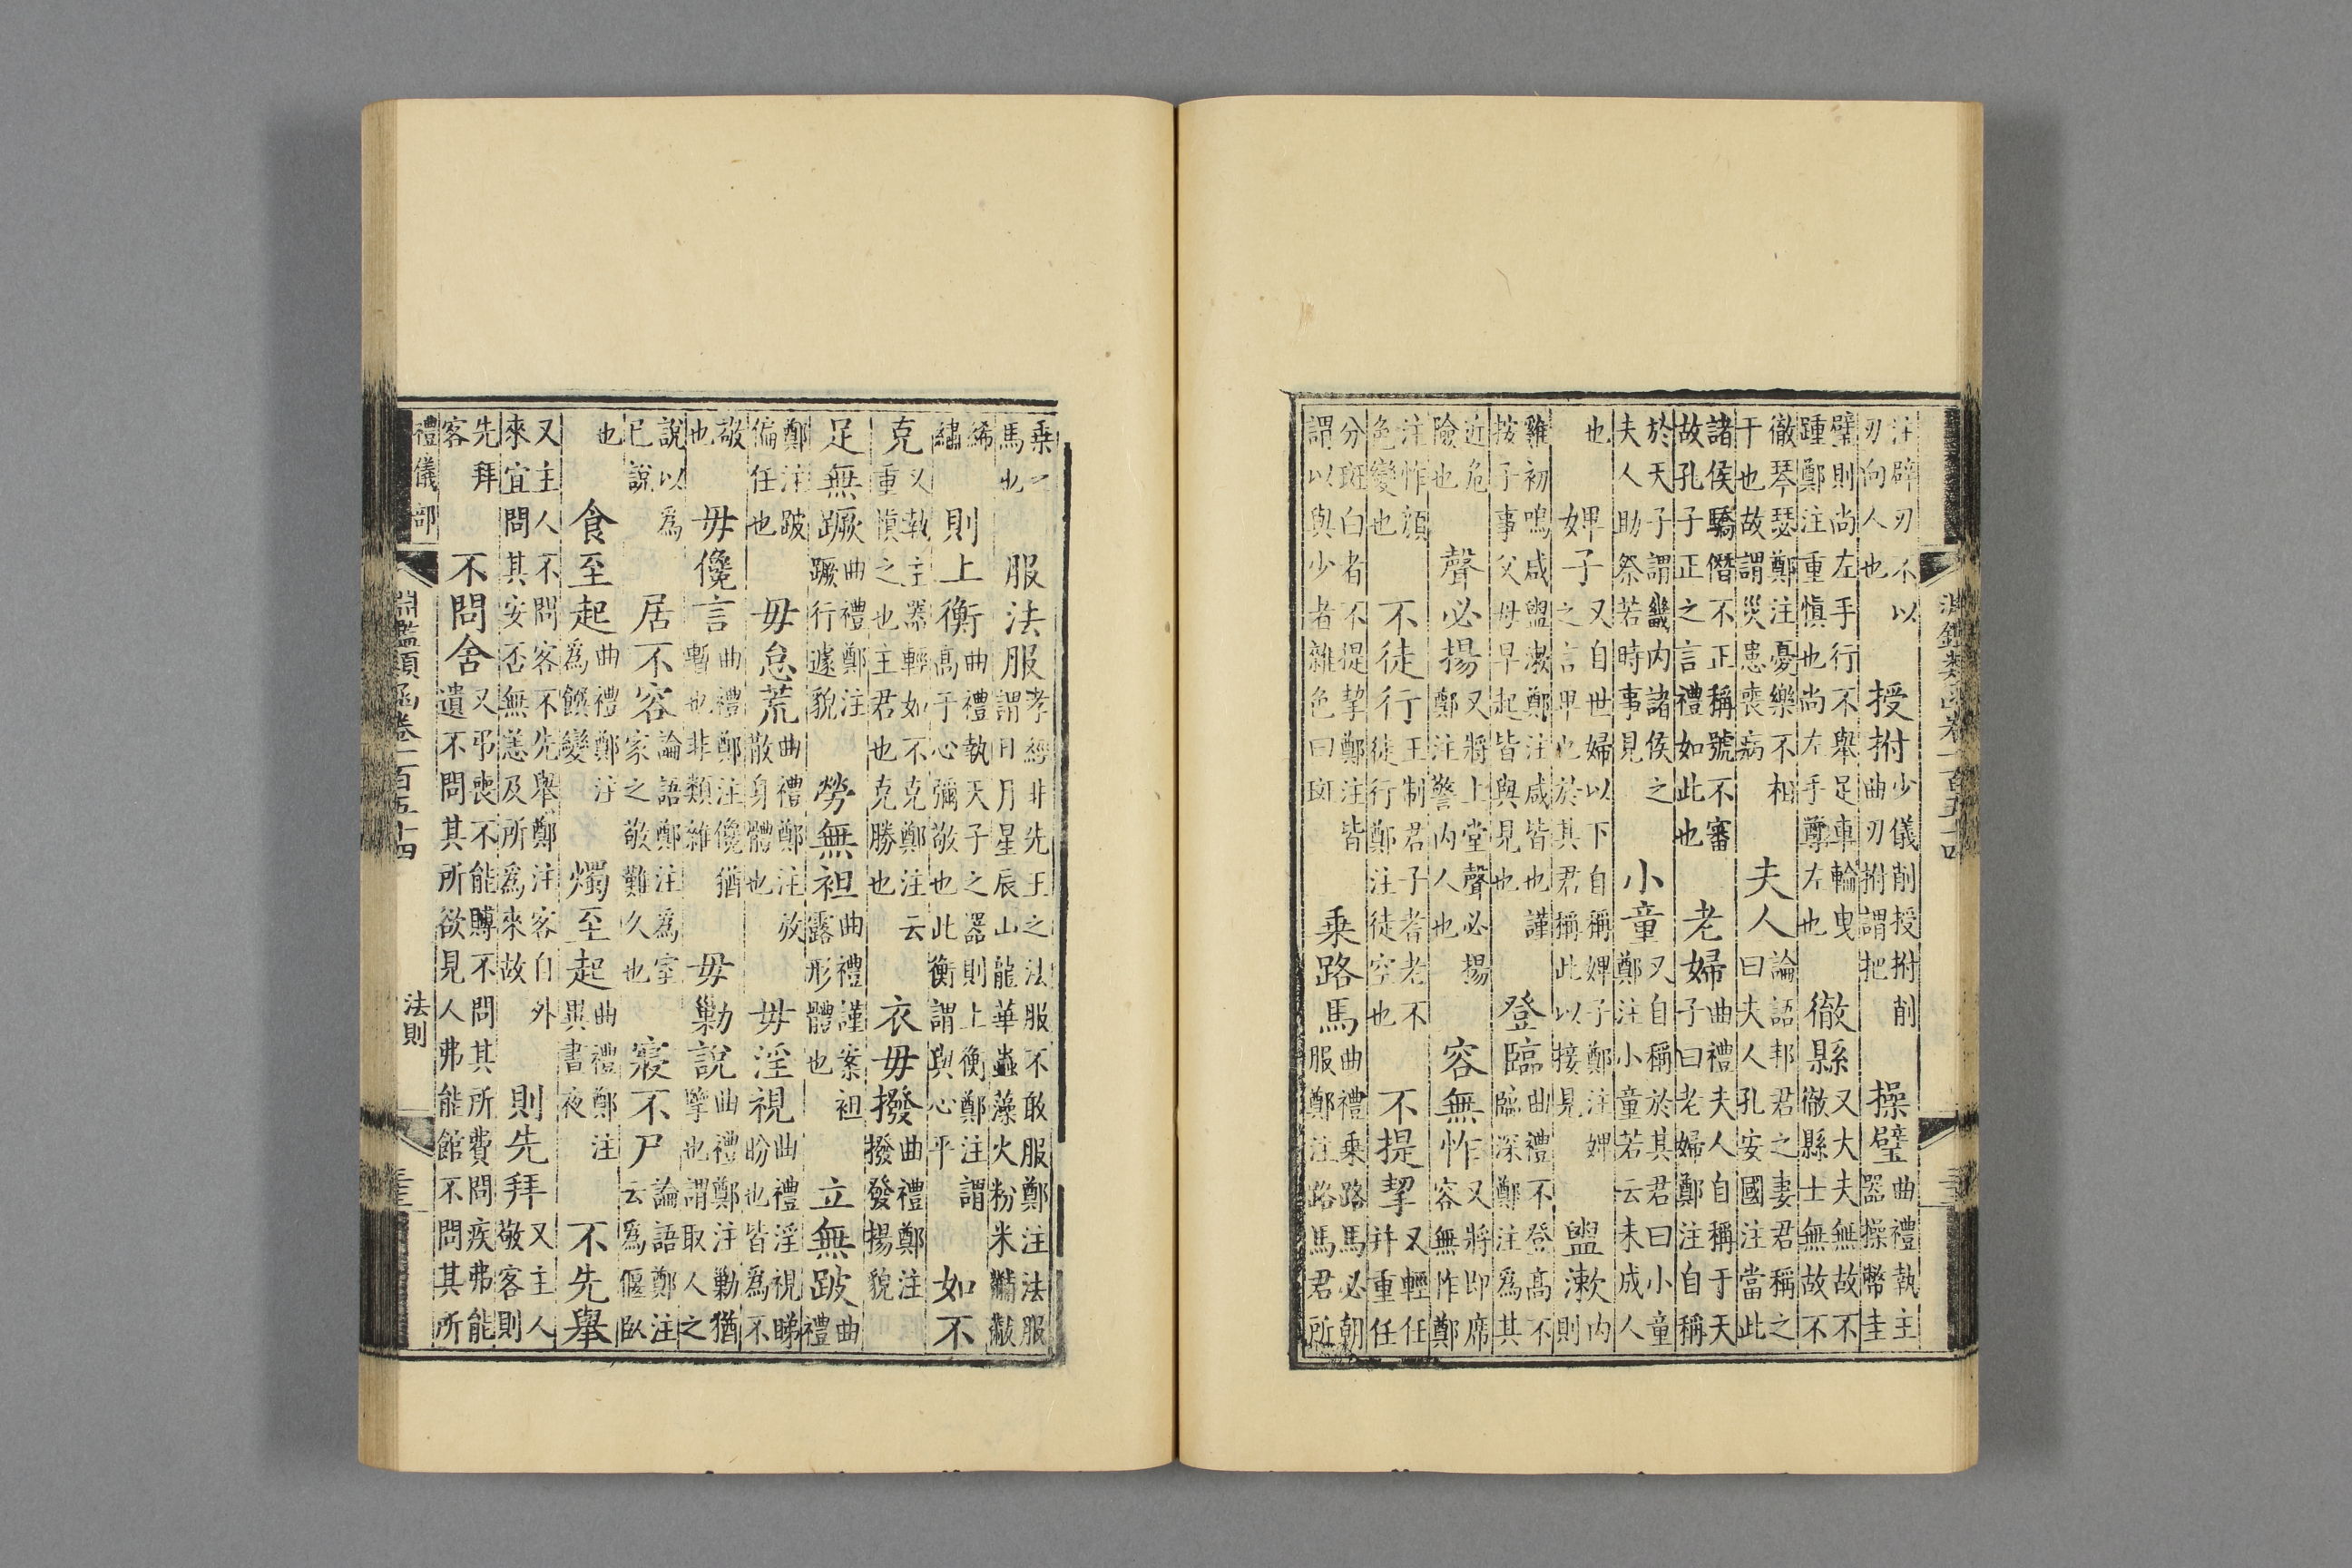 注辟刃不以刃向人也　授拊少儀削授拊削曲刃拊謂把　操璧曲禮執主器操幣圭
璧則尚左手行不舉足車輪曳踵鄭注重慎也尚左手尊左也　徹縣又大夫無故不徹縣士無故不
徹琴瑟鄭注憂樂不相干也故謂災患喪病　夫人論語邦君之妻君稱之曰夫人孔安國注當此
諸侯驕僭不正稱號不審故孔子正之言禮如此也　老婦曲禮夫人自稱于天子曰老婦鄭注自稱
於天子謂畿内諸侯之夫人助祭若時事見　小童又自稱於其君曰小童鄭注小童若云未成人
也　婢子又自世婦以下自稱婢子鄭注婢之言卑也於其君稱此以接見　盥漱内則
雞初鳴咸盥漱鄭注咸皆也謹按子事父母早起皆與見也　登臨曲禮不登高不臨深鄭注為其
近危險也　聲必揚又將上堂聲必揚鄭注警内人也　容無怍又將即席容無怍鄭
注怍顔色變也　不徒行王制君子耆老不徒行鄭注徒空也　不提挈又輕任并重任
分斑白者不提挈鄭注皆謂以與少者雜色曰斑　乗路馬曲禮乗路馬必朝服鄭注路馬君所
乗之馬也　服法服孝經非先王之法服不敢服鄭注法服謂日月星辰山龍華蟲藻火粉米黼黻
絺繡　則上衡曲禮執天子之器則上衡鄭注謂高于心彌敬也此衡謂與心平　如不
克又執主器輕如不克鄭注云重慎之也主君也克勝也　衣毋撥曲禮鄭注撥發揚貌
足無蹶曲禮鄭注蹶行遽貌　勞無袒曲禮謹案袒露形體也　立無跛曲禮
鄭注跛偏任也　毋怠荒曲禮鄭注放散身體也　毋淫視曲禮淫視睇盻也皆為不
敬也　毋儳言曲禮鄭注儳猶暫也非類雜　毋勦說曲禮鄭注勦猶擥也謂取人之
說以為已說　居不容論語鄭注為室家之敬難久也　寢不尸論語鄭注云為偃臥
也　食至起曲禮鄭注為饌變　燭至起曲禮鄭注異晝夜　不先舉
又主人不問客不先舉鄭注客自外來宜問其安否無恙及所為來故　則先拜又主人敬客則
先拜客　不問舍又弔喪不能賻不問其所費問疾弗能遺不問其所欲見人弗能館不問其所
禮儀部　淵鑑類函卷一百五十四　法則